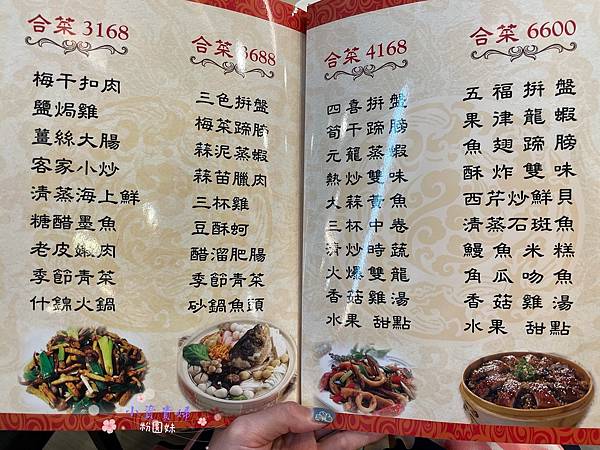 合菜 3168
梅干扣肉
鹽焗雞
薑絲大腸
客家小炒
清蒸海上鮮
糖醋墨魚
老皮嫩肉
季節青菜
什錦火鍋
合菜 3688
三色拼盤
梅菜蹄膀
蒜泥蒸蝦
蒜苗臘肉
三杯雞
豆酥蚵
醋溜肥腸
季節青菜
砂鍋魚頭
合菜 4168
四喜拼盤
筍干蹄膀
元龍蒸蝦
熱炒雙味
大蒜黃魚
三杯中卷
清炒時蔬
火爆雙龍
香菇雞湯
水果 甜點
合菜 6600
五福拼盤
果津龍蝦
魚翅蹄膀
酥炸雙味
西芹炒鮮貝
清蒸石斑魚
鰻魚米糕
角瓜吻魚
香菇雞湯
水果 甜點
粉圓妹